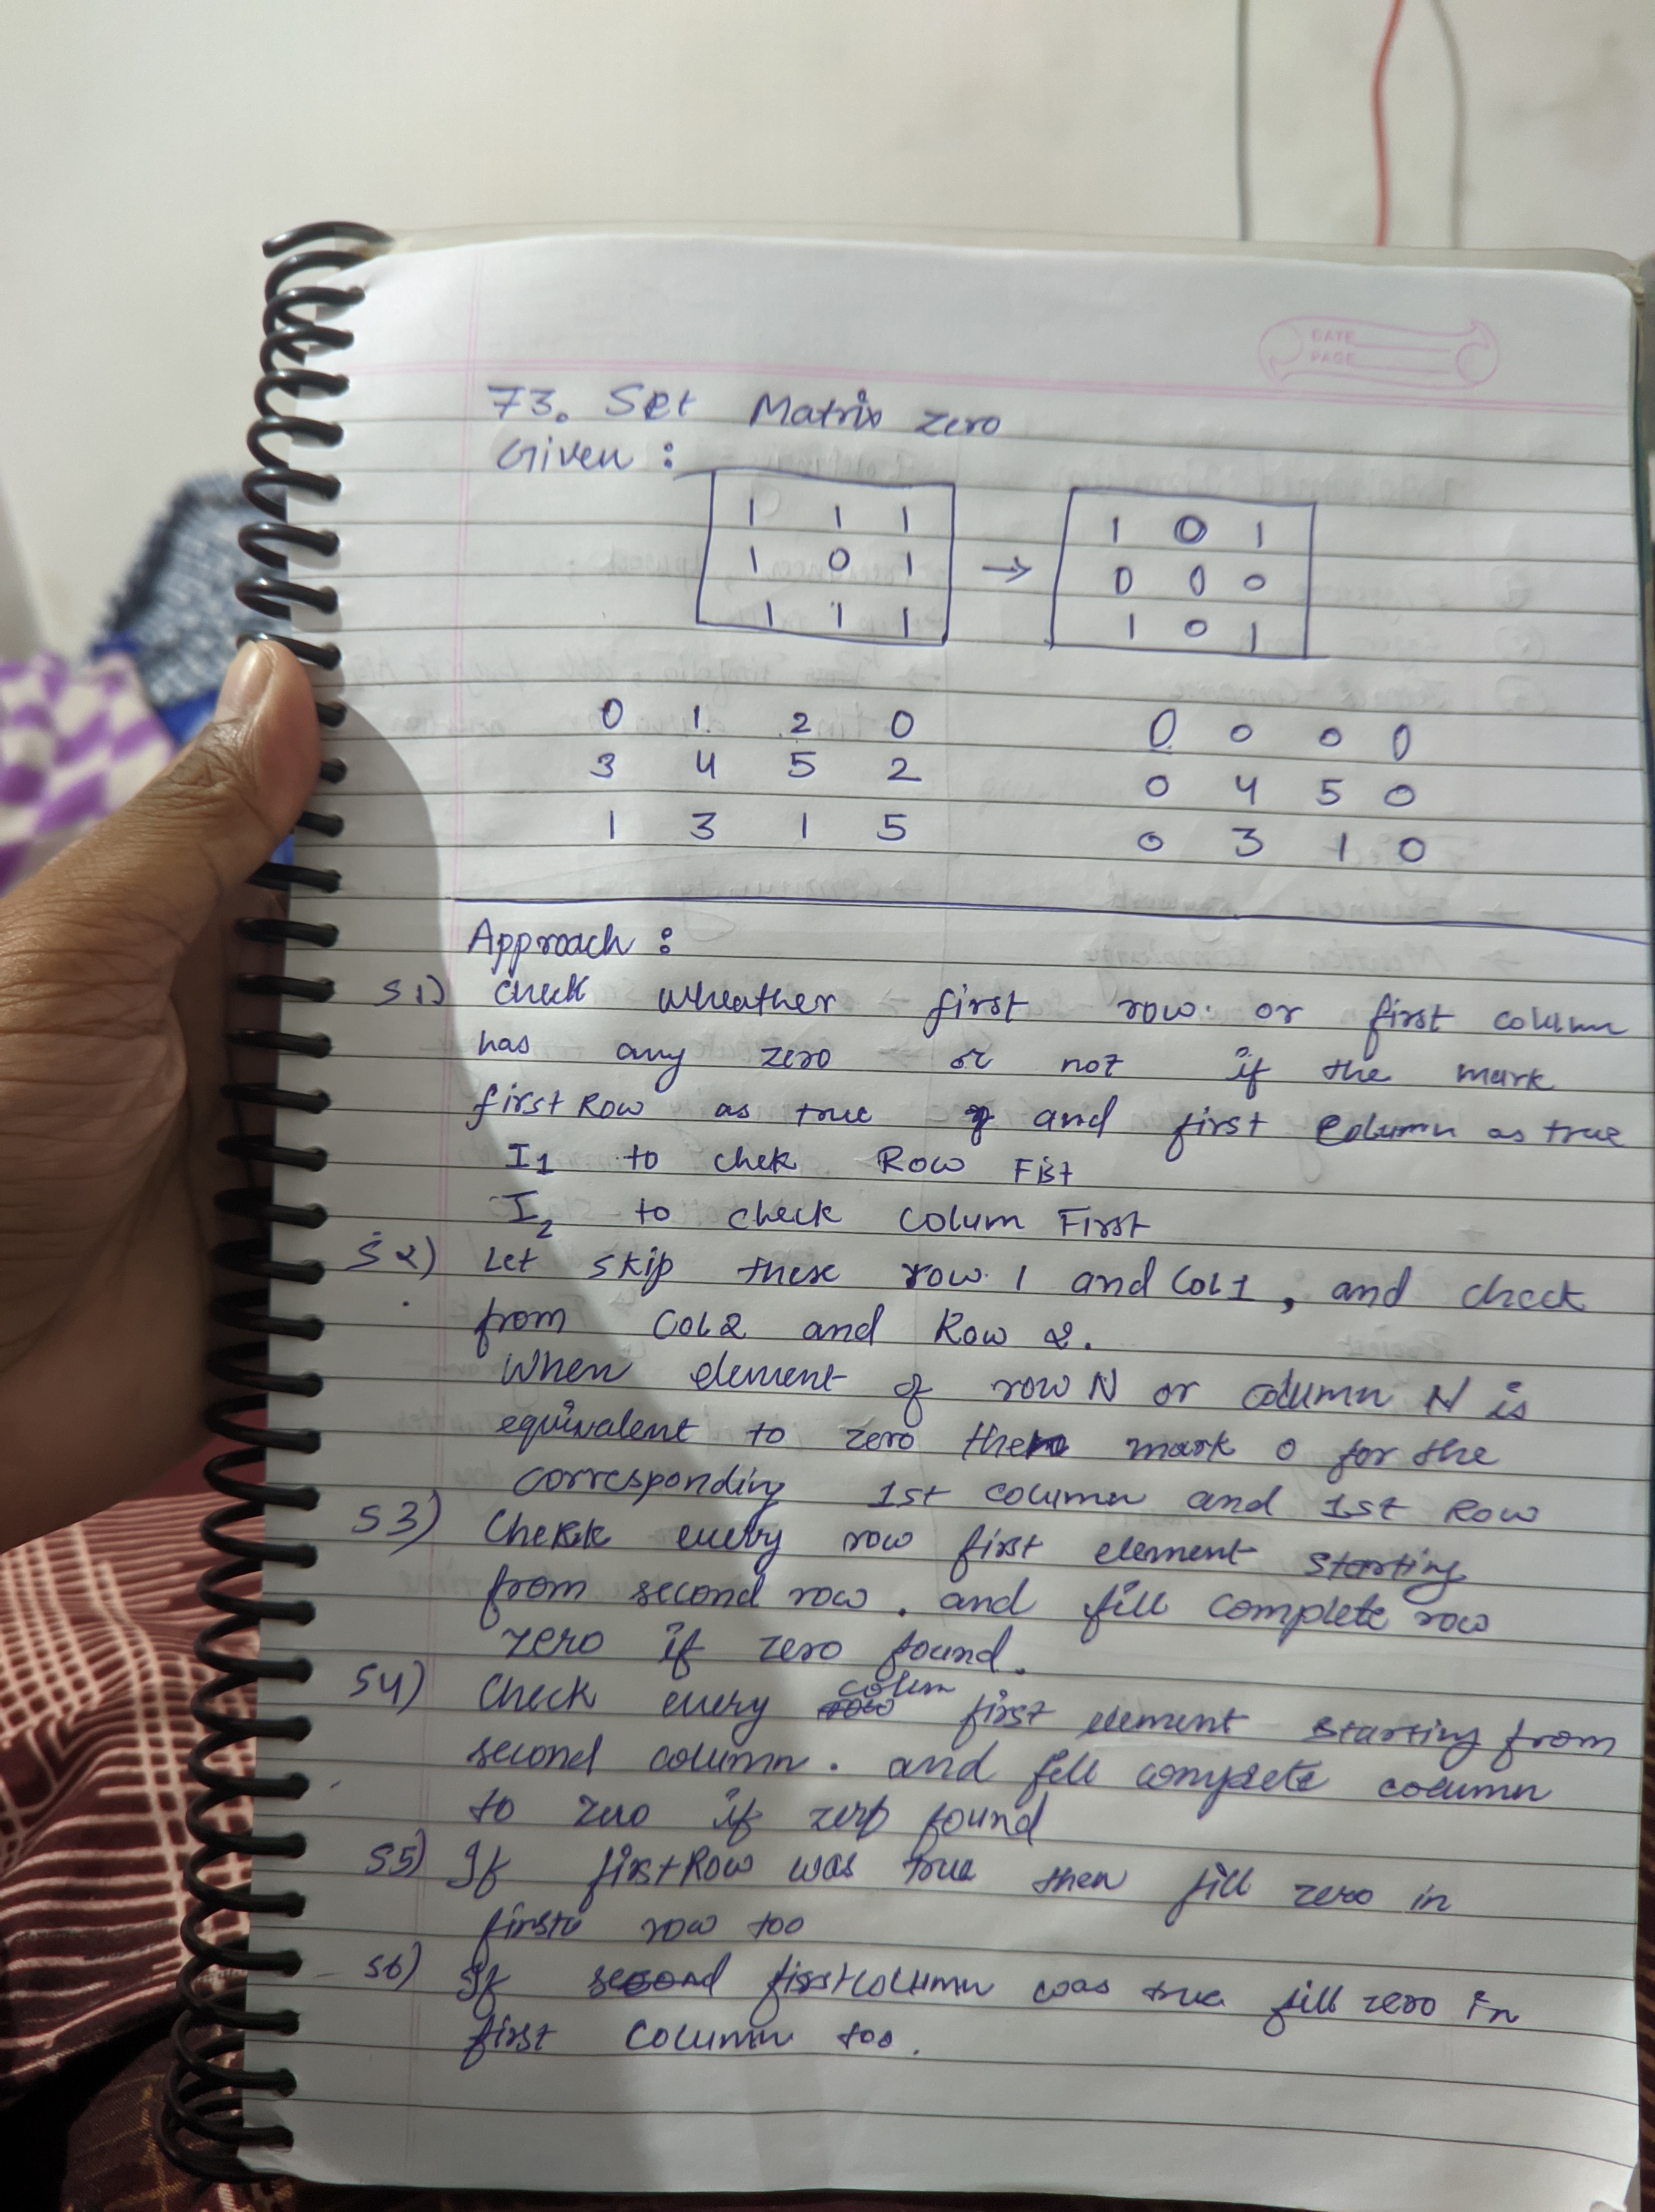 DATE
PAGE
73. Set Matrix zero
Given :
1 1 1
1 0 1
1 1 1
→
1 0 1
0 0 0
1 0 1
0 1 2 0
3 4 5 2
1 3 1 5
0 0 0 0
0 4 5 0
0 3 1 0
Approach :
S1) check wheather first row or first column
has any zero or not if the mark
first Row as true and first Column as true
I1 to chek Row Fist
I2 to check colum First
S2) Let skip these row 1 and Col 1, and check
from Col 2 and Row 2.
When element of row N or column N is
equivalent to zero then mark 0 for the
corresponding 1st column and 1st Row
S3) Chekk every row first element starting
from second row. and fill complete row
zero if zero found.
S4) Check every colum first element starting from
second column. and fill complete column
to zero if zero found
S5) If firstRow was true then fill zero in
first row too
S6) If second firstcolumn was true fill zero in
first column too.